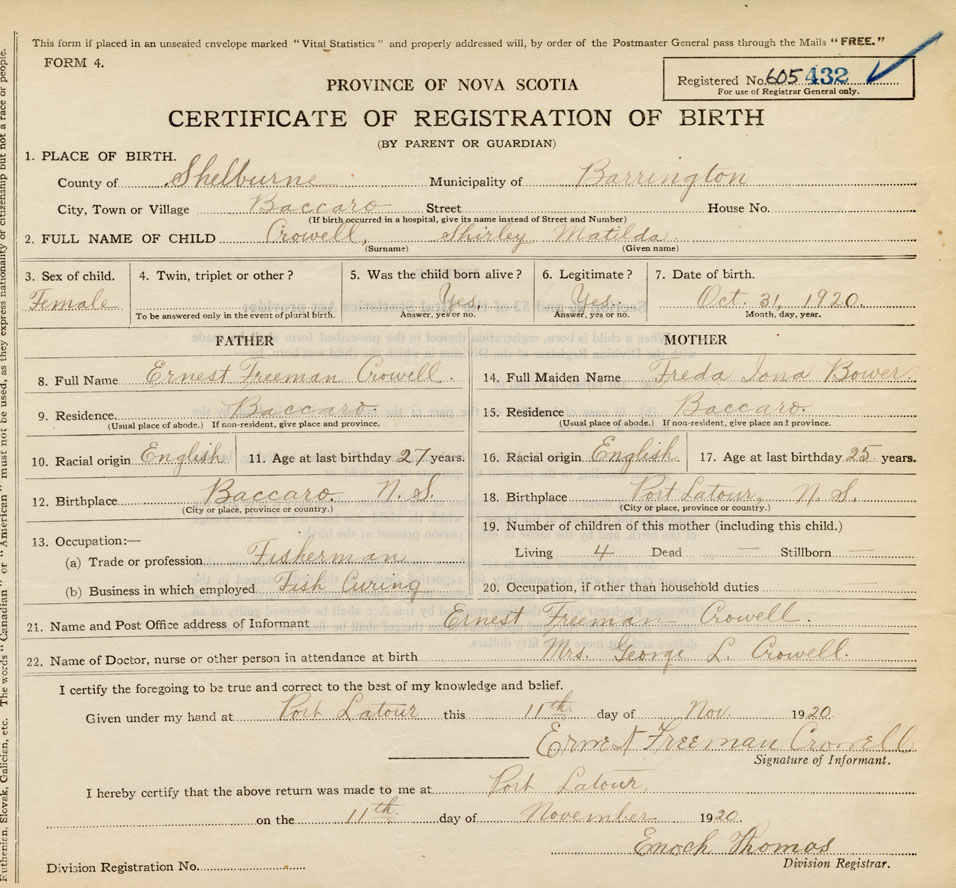 This form if placed in an unsealed envelope marked "Vital Statistics" and properly addressed will, by order of the Postmaster General pass through the Mails "FREE."
FORM 4.
Registered No. 605 432
For use of Registrar General only.
PROVINCE OF NOVA SCOTIA
CERTIFICATE OF REGISTRATION OF BIRTH
(BY PARENT OR GUARDIAN)
1. PLACE OF BIRTH.
County of Shelburne Municipality of Barrington
City, Town or Village Baccaro Street House No.
(If birth occurred in a hospital, give its name instead of Street and Number)
2. FULL NAME OF CHILD Crowell, Shirley Matilda.
(Surname) (Given name)
3. Sex of child. 4. Twin, triplet or other? 5. Was the child born alive? 6. Legitimate? 7. Date of birth.
Female Yes. Yes. Oct. 31, 1920.
To be answered only in the event of plural birth. Answer, yes or no. Answer, yes or no. Month, day, year.
FATHER MOTHER
8. Full Name Ernest Freeman Crowell. 14. Full Maiden Name Freda Iona Bower.
9. Residence. Baccaro. 15. Residence Baccaro.
(Usual place of abode.) If non-resident, give place and province. (Usual place of abode.) If non-resident, give place and province.
10. Racial origin English 11. Age at last birthday 27 years. 16. Racial origin English 17. Age at last birthday 25 years.
12. Birthplace Baccaro. N. S. 18. Birthplace Port Latour, N. S.
(City or place, province or country.) (City or place, province or country.)
19. Number of children of this mother (including this child.)
13. Occupation:—
(a) Trade or profession Fisherman Living 4 Dead — Stillborn —
(b) Business in which employed Fish Curing 20. Occupation, if other than household duties
21. Name and Post Office address of Informant Ernest Freeman Crowell.
22. Name of Doctor, nurse or other person in attendance at birth Mrs. George L. Crowell.
I certify the foregoing to be true and correct to the best of my knowledge and belief.
Given under my hand at Port Latour this 11th day of Nov. 1920.
Ernest Freeman Crowell
Signature of Informant.
I hereby certify that the above return was made to me at Port Latour,
on the 11th. day of November 1920.
Enoch Thomas
Division Registrar.
Division Registration No.
Ruthenian, Slovak, Galician, etc. The words "Canadian" or "American" must not be used, as they express nationality or citizenship but not a race or people.